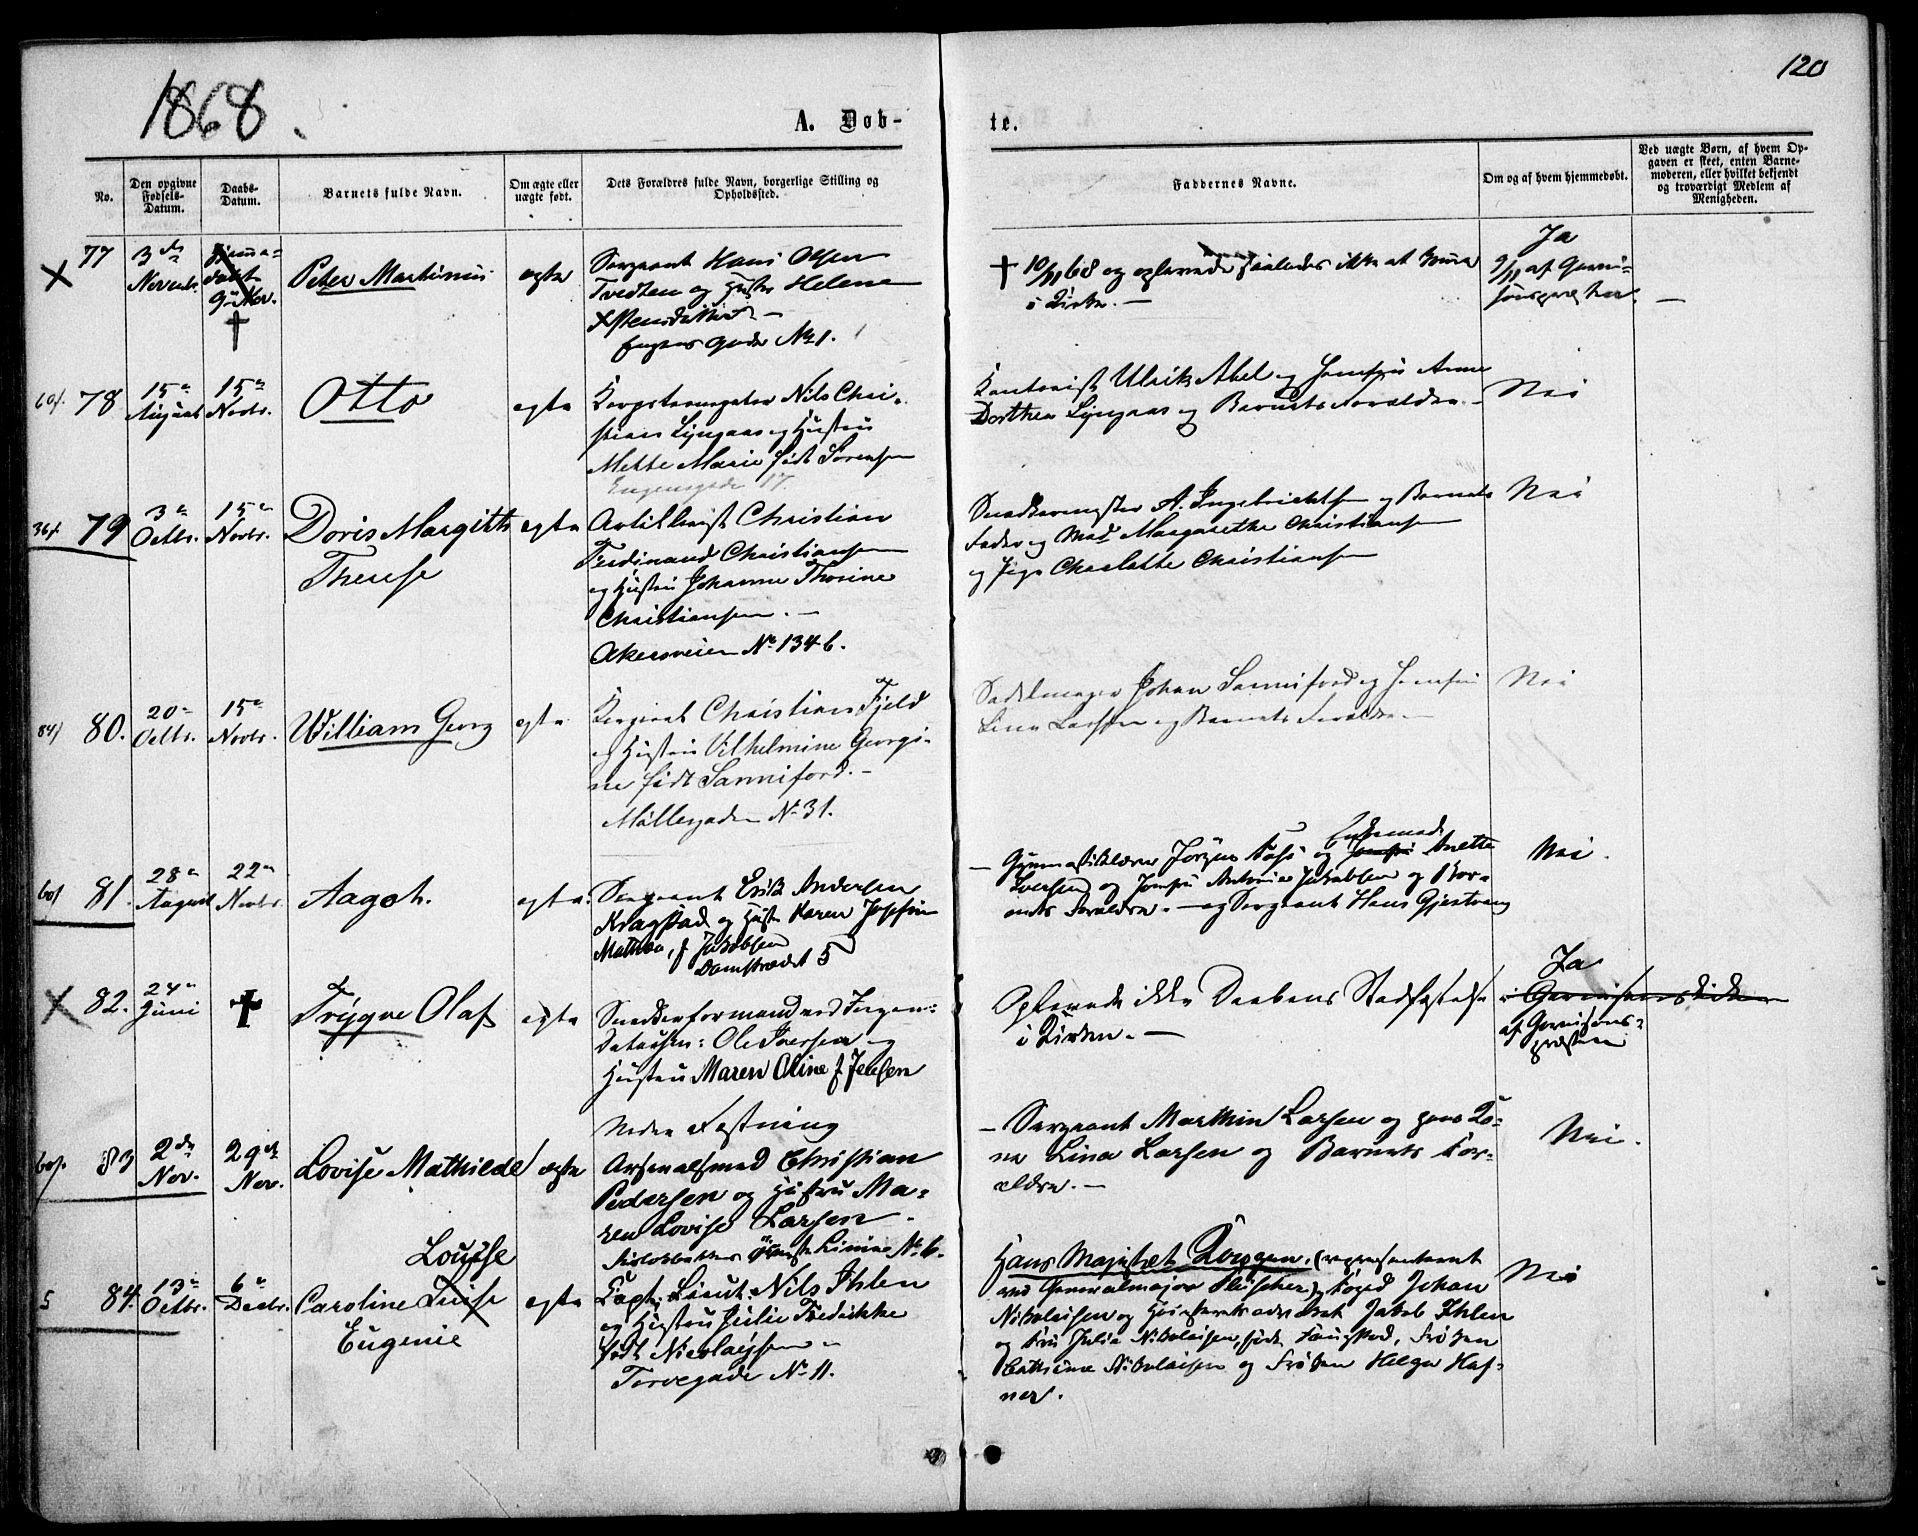 1868.
120
A. Døb-
te.
No.
Den opgivne
Fødsels-
Datum.
Daabs-
Datum.
Barnets fulde Navn.
Om ægte eller
uægte født.
Dets Forældres fulde Navn, borgerlige Stilling og
Opholdssted.
Faddernes Navne.
Om og af hvem hjemmedøbt.
Ved uægte Børn, af hvem Op-
gaven er skeet, enten Barne-
moderen, eller hvilket bekjendt
og troværdigt Medlem af
Menigheden.
77
3die
Novembr.
Hjemme-
døbt
9 Nov.
Peter Martinius
ægte
Sergeant Hans Olsen
Tvedten og Hustru Helene
gade No 1.
† 10/11 68 og oplevede saaledes ikke at komme
i Kirke. —
Ja
9/11 af Garni-
sonspræsten
—
78
15de
August
15de
Novbr.
Otto
ægte
Nils Chri-
stian Lyngaas og Hustru
Mette Marie født Sørensen
Eugeniegade 17.
Kontorist Ulrik Abel og Jomfru Anne
Dorthea Lyngaas og Barnets Forældre. —
Nei
79
3de
Octbr.
15de
Novbr.
Doris Margith
Therese
ægte
Artillerist Christian
Ferdinand Christiansen
og Hustru Johanne Thorine
Christiansen. —
Akersveien No 134 b.
Snedkermester A. Ingebrichtsen og Barnets
Fader og Mad Margarethe Christiansen
og Pige Charlotte Christiansen
Nei
84)
80.
20de
Octbr.
15de
Novbr.
William Georg
ægte
Sergeant Christian Fjeld
og Hustru Vilhelmine Georgi-
ne født Sanniford. —
Møllergaden No 31.
Sadelmager Johan Sanniford og Jomfru
Lina Larsen og Barnets Forældre. —
Nei
81.
28de
August
22de
Novbr.
Aagot.
ægte.
Sergeant Erik Andersen
Kragstad og Hust. Karen Josefine
Mathea, f Jakobsen
Damstrædet 5
— Gymnastiklærer Jørgen og Anette
Iversen og Jomfru Antonie Jakobsen og Bar-
nets Forældre. — og Sergeant Hans Gjestvang
Nei.
82.
24de
Juni
†
Trygve Olaf
ægte
Snedkerformand ved Ingen:
Detaschm: Ole Iversen og
Hustru Maren Oline f Jensen
Nedre Fæstning
Oplevede ikke Daabens Stadfæstelse
i Kirken. —
Ja
i Garnisonskirken
af Garnisons-
præsten
83
2den
Nov.
29de
Nov.
Lovise Mathilde
ægte
Arsenalsmed Christian
Pedersen og Hustru Ma-
ren Lovise Larsen.
No 6.
— Sergeant Marthin Larsen og hans Ko-
ne Lina Larsen og Barnets For-
ældre. —
Nei.
5
84.
13de
Octbr.
6te
Decbr.
Louise
Caroline Luise
Eugenie
ægte
Capt: Lieut: Nils Ihlen
og Hustru Julie Fredrikke
født Nicolaysen —
Torvegade No 11.
Hans Majestet Kongen, (repræsenteret
ved Generalmajor) Johan
Nikolaisen og Jakob Ihlen
og Fru Julie Nikolaisen, født Fougstad, Frøken
Cathrine Nikolaisen og Frøken Helga Haf-
ner.
Nei